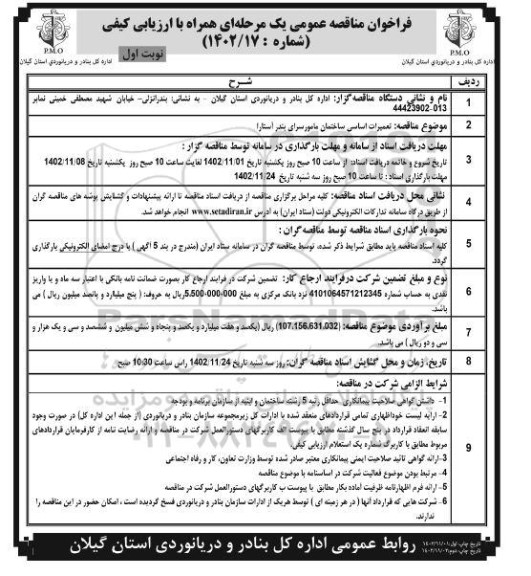 فراخوان مناقصه عمومی یک مرحله‌ای همراه با ارزیابی کیفی
(شماره : ۱۴۰۲/۱۷)
نوبت اول
P.M.O
P.M.O
اداره کل بنادر و دریانوردی استان گیلان
اداره کل بنادر و دریانوردی استان گیلان
ردیف
شـــرح
1
نام و نشانی دستگاه مناقصه‌گزار: اداره کل بنادر و دریانوردی استان گیلان - به نشانی: بندرانزلی- خیابان شهید مصطفی خمینی نمابر
013-44423902
2
موضوع مناقصه: تعمیرات اساسی ساختمان مانورسرای بندر آستارا
3
مهلت دریافت اسناد از سامانه و مهلت بارگذاری در سامانه توسط مناقصه گزار :
تاریخ شروع و خاتمه دریافت اسناد: از ساعت 10 صبح روز یکشنبه تاریخ 1402/11/01 لغایت ساعت 10 صبح روز یکشنبه تاریخ 1402/11/08
مهلت بارگذاری اسناد : تا ساعت 10 صبح روز سه شنبه تاریخ 1402/11/24
4
نشانی محل دریافت اسناد مناقصه: کلیه مراحل برگزاری مناقصه از دریافت اسناد مناقصه تا ارائه پیشنهادات و گشایش پوشه های مناقصه گران
از طریق درگاه سامانه تدارکات الکترونیکی دولت (ستاد ایران) به آدرس www.setadiran.ir انجام خواهد شد.
5
نحوه بارگذاری اسناد مناقصه توسط مناقصه‌گران :
کلیه اسناد مناقصه باید مطابق شرایط ذکر شده، توسط مناقصه گران در سامانه ستاد ایران (مندرج در بند 5 آگهی ) با درج امضای الکترونیکی بارگذاری
گردد.
6
نوع و مبلغ تضمین شرکت درفرایند ارجاع کار: تضمین شرکت در فرایند ارجاع کار بصورت ضمانت نامه بانکی با اعتبار سه ماه و یا واریز
نقدی به حساب شماره 4101064571212345 نزد بانک مرکزی به مبلغ 5.500.000.000ریال به حروف: ( پنج میلیارد و پانصد میلیون ریال ) می
باشد.
7
مبلغ برآوردی موضوع مناقصه: (107.156.631.032) ریال (یکصد و هفت میلیارد و یکصد و پنجاه و شش میلیون و ششصد و سی و یک هزار و
سی و دو ریال ) می باشد.
8
تاریخ، زمان و محل گشایش اسناد مناقصه گران: روز سه شنبه تاریخ 1402/11/24 راس ساعت 10:30 صبح
9
شرایط الزامی شرکت در مناقصه:
1- داشتن گواهی صلاحیت پیمانکاری حداقل رتبه 5 رشته ساختمان و ابنیه از سازمان برنامه و بودجه
2- ارایه لیست خوداظهاری تمامی قراردادهای منعقد شده با ادارات کل زیرمجموعه سازمان بنادر و دریانوردی (از جمله این اداره کل) در صورت وجود
سابقه انعقاد قرارداد در پنج سال گذشته مطابق با پیوست الف کاربرگهای دستورالعمل شرکت در مناقصه و ارائه رضایت نامه از کارفرمایان قراردادهای
مربوط مطابق با کاربرگ شماره یک استعلام ارزیابی کیفی.
3-ارائه گواهی تائید صلاحیت ایمنی پیمانکاری معتبر صادر شده توسط وزارت تعاون، کار و رفاه اجتماعی
4- مرتبط بودن موضوع فعالیت شرکت در اساسنامه با موضوع مناقصه
5- ارائه فرم اظهارنامه ظرفیت آماده بکار مطابق با پیوست ب کاربرگهای دستورالعمل شرکت در مناقصه
6- شرکت هایی که قرارداد آنها ( در هر زمینه ای ) توسط هریک از ادارات سازمان بنادر و دریانوردی فسخ گردیده است ، امکان حضور در این مناقصه را
ندارند.
روابط عمومی اداره کل بنادر و دریانوردی استان گیلان
تاریخ چاپ اول: ۱۴۰۲/۱۱/۰۱
تاریخ چاپ دوم: ۱۴۰۲/۱۱/۰۲